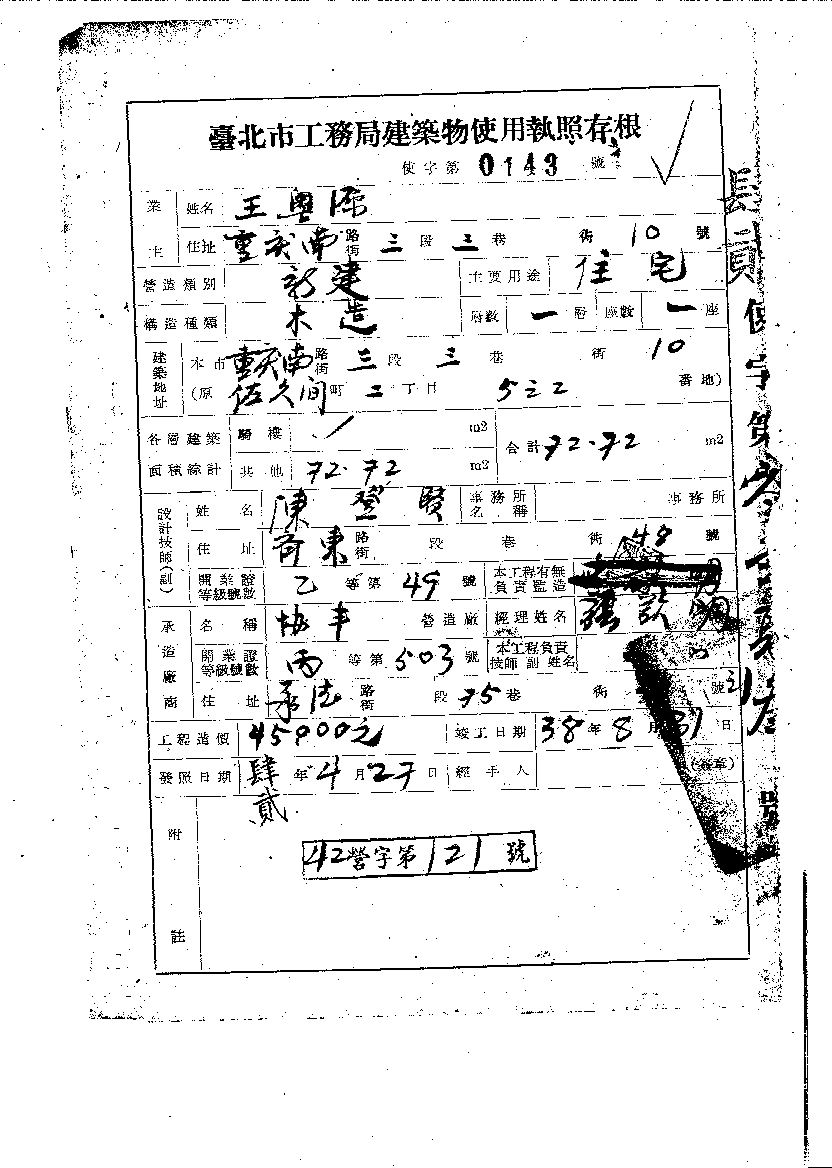 臺北市工務局建築物使用執照存根
使字第 0143 號
業主 姓名 王奧源
住址 重庆南 路街 三 段 三 巷 街 10 號
營造類別 新建 主要用途 住宅
構造種類 木造 層數 一 層 座數 一 座
建築地址 本市 重庆南 路街 三 段 三 巷 街 10
(原 佐久间 町 二 丁目 5三2 番地)
各層建築面積總計 騎樓 / m2 合計 72.72 m2
其他 72.72 m2
設計技師(副) 姓名 陳登賢 事務所名稱 事務所
住址 齐東 路街 段 巷 街 48 號
開業證等級號數 乙 等第 49 號 本工程有無負責監造
承造廠商 名稱 協丰 營造廠 經理姓名
開業證等級號數 丙 等第 503 號 本工程負責技師副姓名
住址 承德 路街 段 75 巷 街 號
工程造價 45000元 竣工日期 38 年 8 月 31 日
發照日期 肆貳 年 4 月 27 日 經手人 (簽章)
附註
42營字第121號